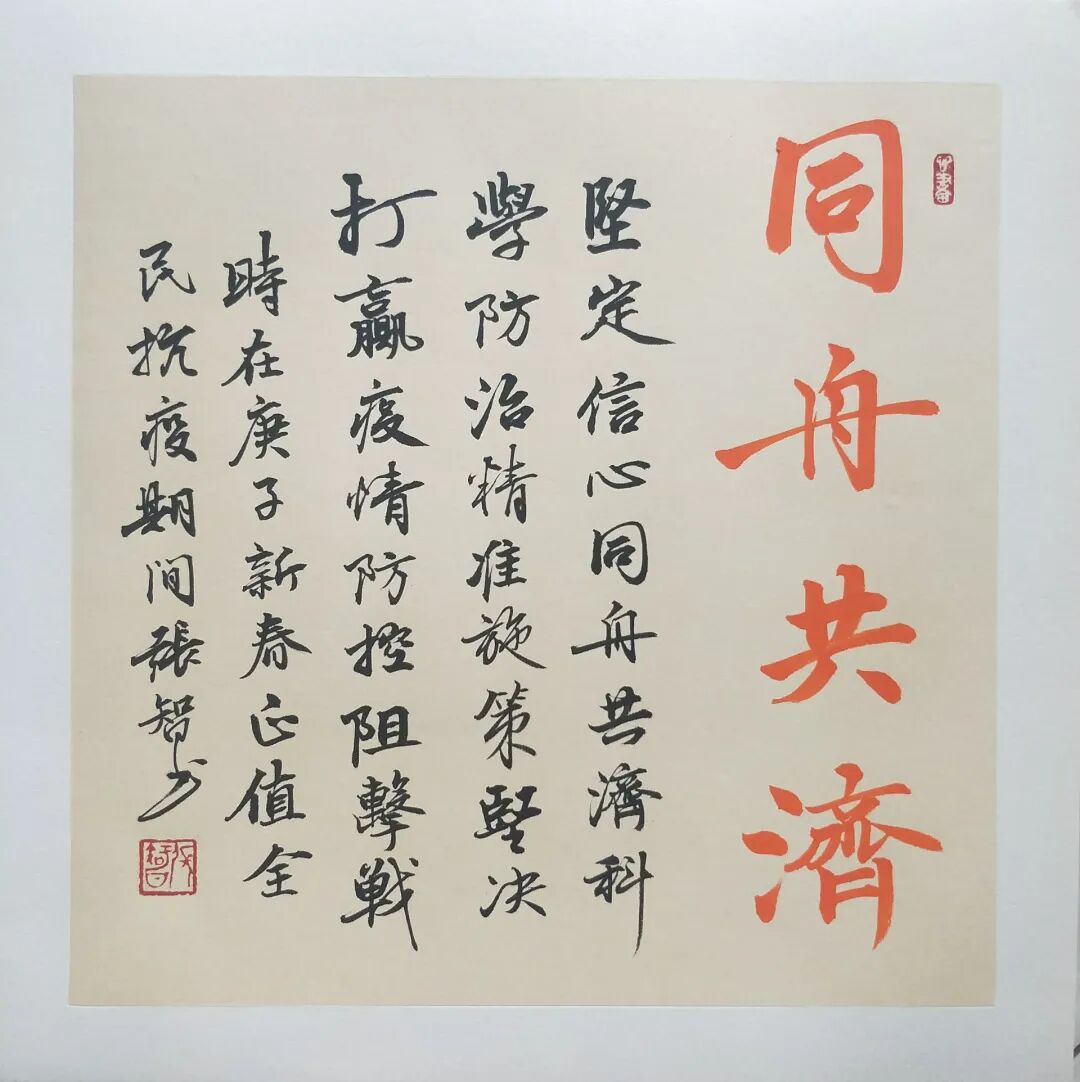 同舟共濟
堅定信心同舟共濟科
學防治精准施策堅決
打贏疫情防控阻擊戰
時在庚子新春正值全
民抗疫期间張智书
張智